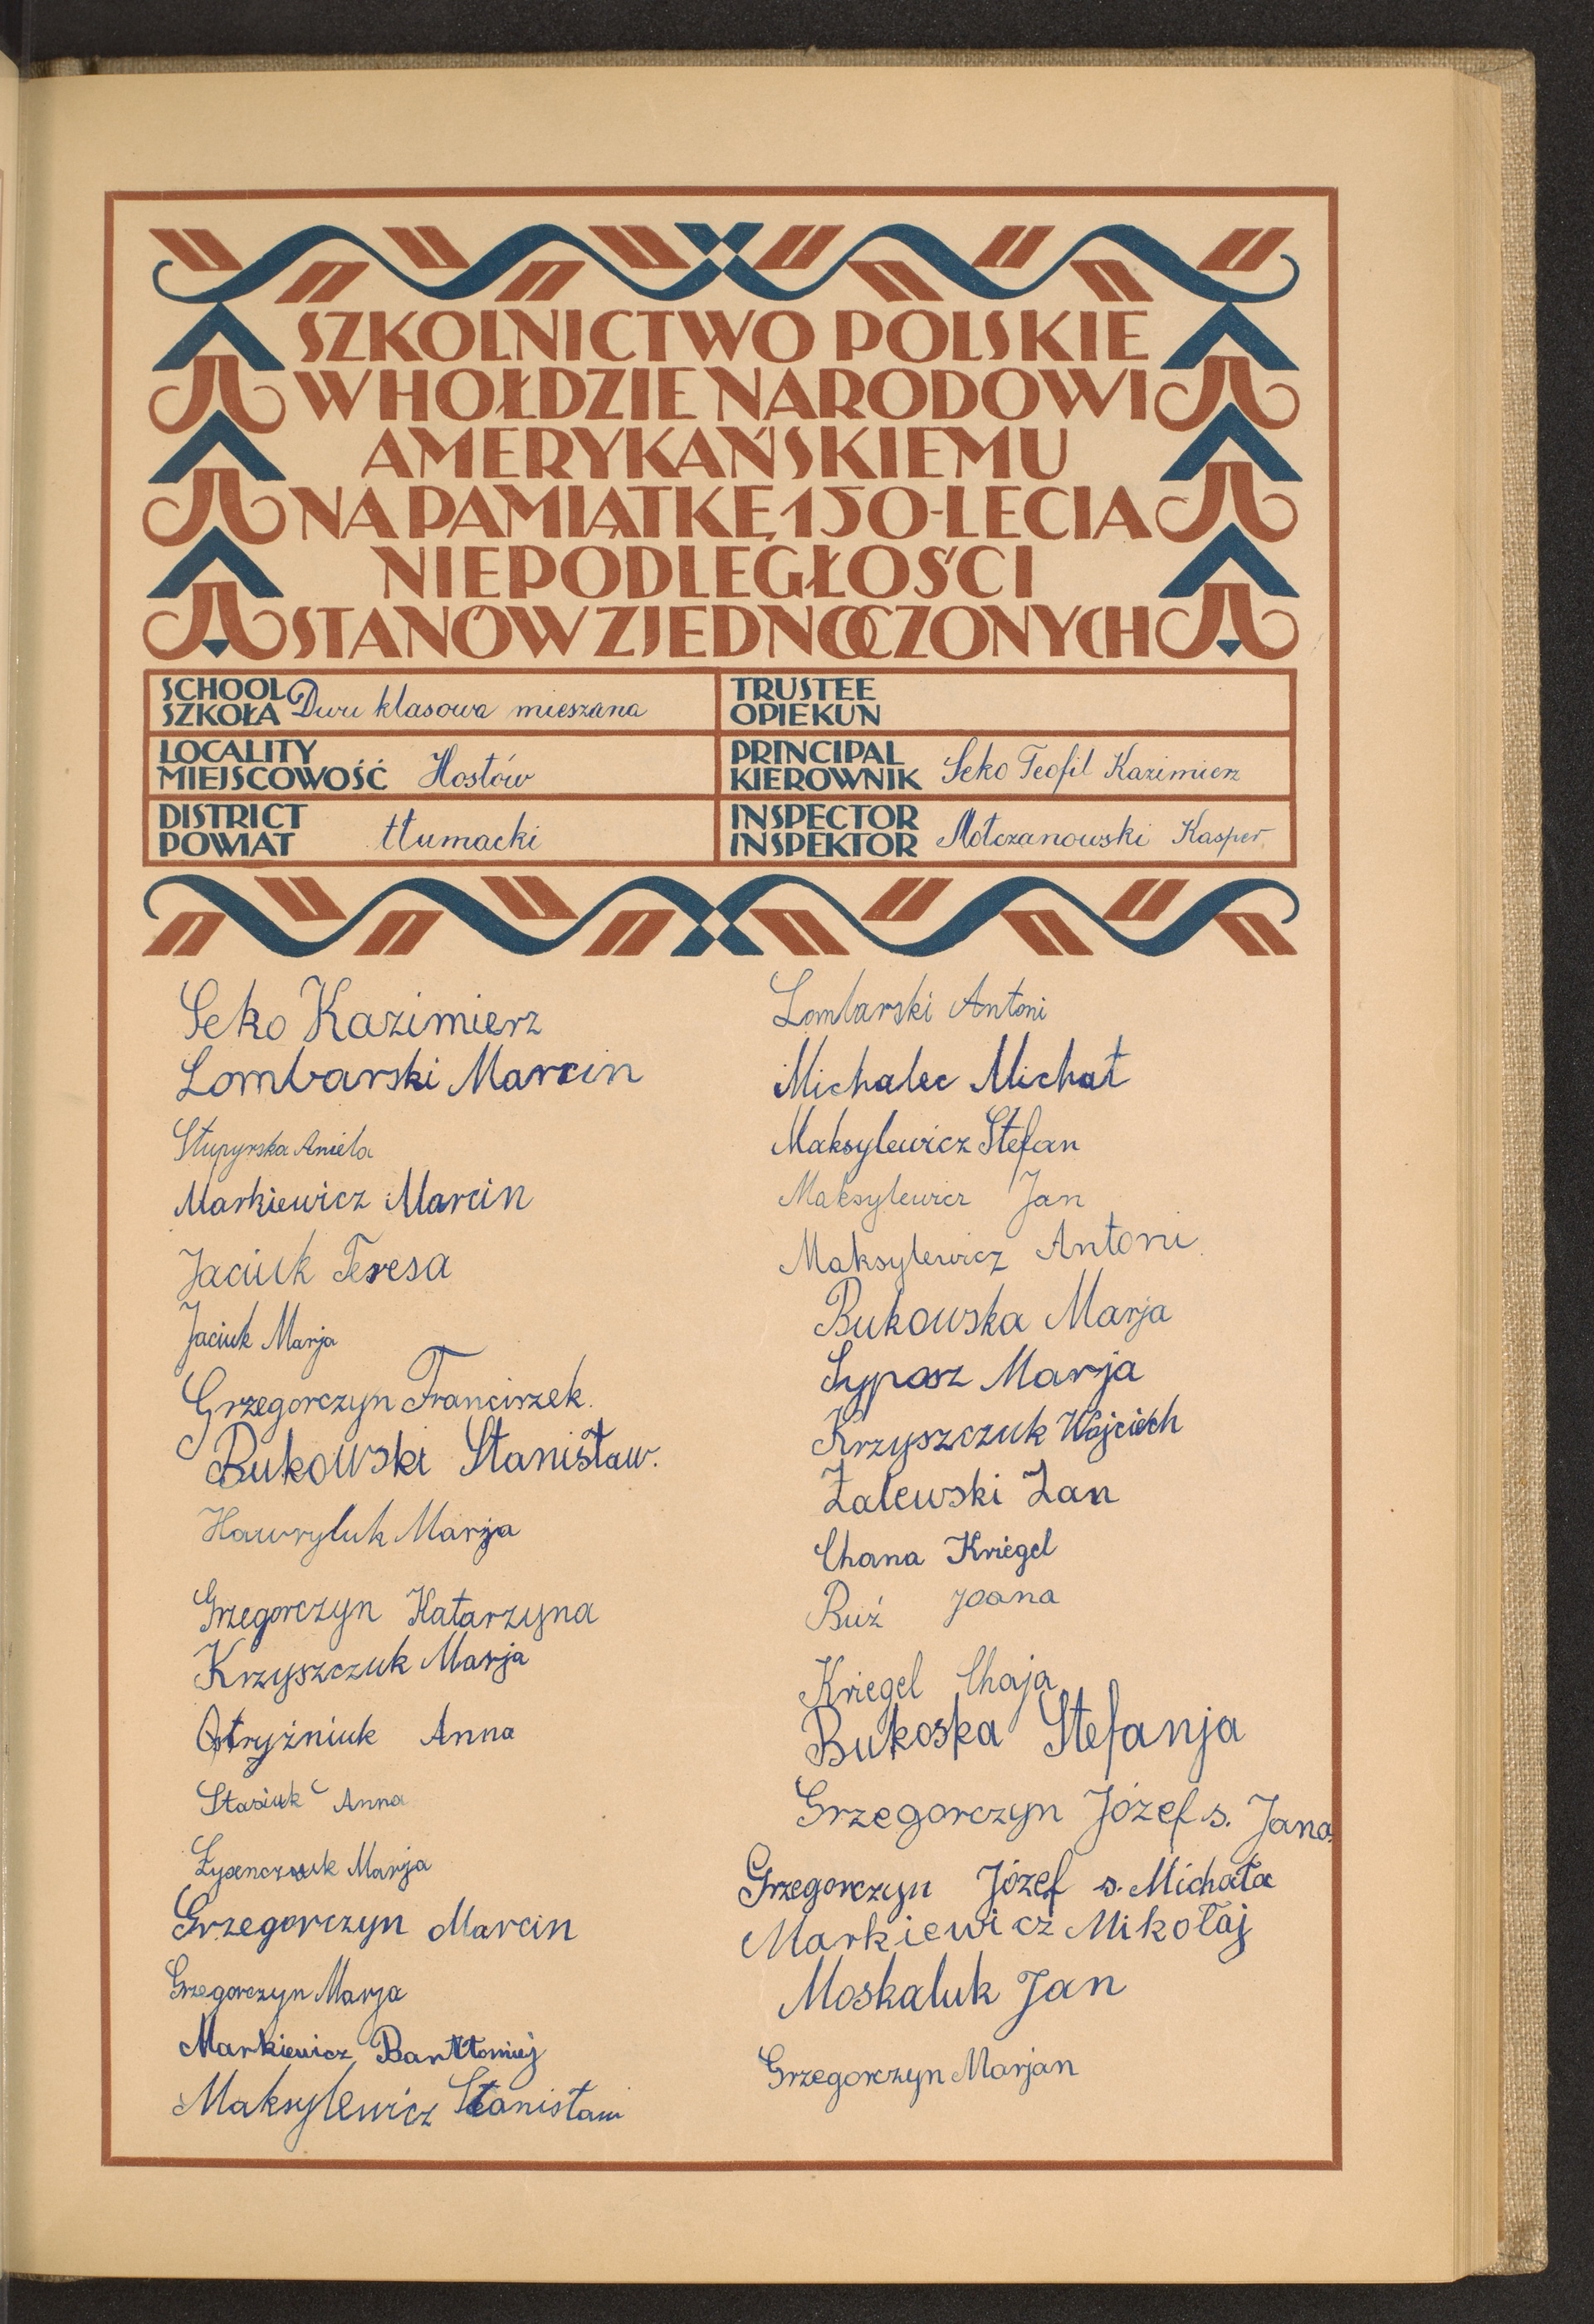 SZKOLNICTWO POLSKIE
W HOŁDZIE NARODOWI
AMERYKAŃSKIEMU
NA PAMIĄTKĘ 150-LECIA
NIEPODLEGŁOŚCI
STANÓW ZJEDNOCZONYCH
SCHOOL
SZKOŁA Dwu klasowa mieszana
TRUSTEE
OPIEKUN
LOCALITY
MIEJSCOWOŚĆ Hostów
PRINCIPAL
KIEROWNIK Seko Teofil Kazimierz
DISTRICT
POWIAT tłumacki
INSPECTOR
INSPEKTOR Mołczanowski Kasper
Seko Kazimierz
Lombarski Marcin
Słupyrska Aniela
Markiewicz Marcin
Jaciuk Teresa
Jaciuk Marja
Grzegorczyn Franciszek.
Bukowski Stanisław.
Hawryluk Marja
Grzegorczyn Katarzyna
Krzyszczuk Marja
Anna
Stasiuk Anna
Marja
Grzegorczyn Marcin
Grzegorczyn Marja
Markiewicz Bartłomiej
Maksylewicz Stanisław
Lombarski Antoni
Michalec Michał
Maksylewicz Stefan
Maksylewicz Jan
Maksylewicz Antoni
Bukowska Marja
Sypasz Marja
Krzyszczuk Wojciech
Zalewski Jan
Chana Kriegel
Buź Joana
Kriegel Chaja
Bukoska Stefanja
Grzegorczyn Józef s. Jana
Grzegorczyn Józef s. Michała
Markiewicz Mikołaj
Moskaluk Jan
Grzegorczyn Marjan